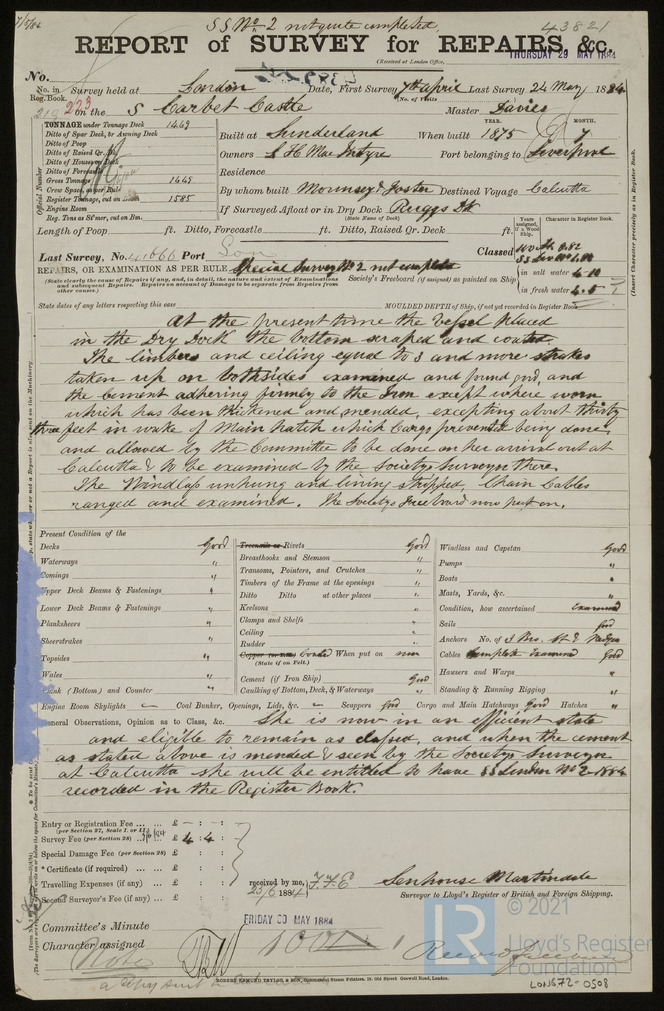 SS No 2 not quite completed
43821
REPORT of SURVEY for REPAIRS, &c.
(Received at London Office,
THURSDAY 29 MAY 1884
No.
No. in Reg. Book. 223 Survey held at London Date, First Survey 7th April Last Survey 24 May 1884
(No. of Visits
on the S Corbet Castle Master Davies
TONNAGE under Tonnage Deck 1469
Ditto of Spar Deck, or Awning Deck
Ditto of Poop
Ditto of Raised Qr. Dk
Ditto of Houses on Deck
Ditto of Forecastle
Gross Tonnage
Crew Space, as per Rule
Register Tonnage, cut on Beam 1585
Engine Room
Reg. Tons as St'mer, cut on Bm.
Official Number
Built at Sunderland When built YEAR. 1875 MONTH. 7
Owners Port belonging to Liverpool
Residence
By whom built Mounsey & Foster Destined Voyage Calcutta
If Surveyed Afloat or in Dry Dock
(State Name of Dock)
Length of Poop ft. Ditto, Forecastle ft. Ditto, Raised Qr. Deck ft.
Years assigned, if a Wood Ship. Character in Register Book.
Last Survey, No. Port Classed
REPAIRS, OR EXAMINATION AS PER RULE Special Survey No 2 not complete
(State clearly the cause of Repairs (if any) and, in detail, the nature and extent of Examinations and subsequent Repairs. Repairs on account of Damage to be separate from Repairs from other causes.)
Society's Freeboard (if assigned) as painted on Ship in salt water 4-10
in fresh water 4-5
State dates of any letters respecting this case MOULDED DEPTH of Ship, if not yet recorded in Register Book
At the present time the Vessel placed
in the Dry Dock the bottom scraped and coated.
The limbers and ceiling equal to 3 and more strakes
taken up on both sides examined and found good, and
the cement adhering firmly to the Iron except where worn
which has been thickened and mended, excepting about thirty
three feet in wake of Main hatch which Cargo prevented being done,
and allowed by the Committee to be done on her arrival out at
Calcutta & to be examined by the Societys Surveyor there.
The Windlass unhung and lining stripped, Chain Cables
ranged and examined. The Societys Freeboard now put on.
Present Condition of the
Decks Good
Waterways "
Comings "
Upper Deck Beams & Fastenings "
Lower Deck Beams & Fastenings "
Planksheers "
Sheerstrakes "
Topsides "
Wales "
Plank (Bottom) and Counter "
Treenails or Rivets Good
Breasthooks and Stemson "
Transoms, Pointers, and Crutches "
Timbers of the Frame at the openings "
Ditto Ditto at other places "
Keelsons "
Clamps and Shelfs "
Ceiling "
Rudder "
Coated When put on now
(State if on Felt.)
Cement (if Iron Ship) Good
Caulking of Bottom, Deck, & Waterways "
Windlass and Capstan Good
Pumps "
Boats "
Masts, Yards, &c. "
Condition, how ascertained Examined
Sails Good
Anchors No. of
Cables Complete Examined Good
Hawsers and Warps "
Standing & Running Rigging "
Engine Room Skylights Coal Bunker, Openings, Lids, &c. Scuppers Good Cargo and Main Hatchways Good Hatches "
General Observations, Opinion as to Class, &c. She is now in an efficient state
and eligible to remain as classed, and when the cement
as stated above is mended & seen by the Societys Surveyor
at Calcutta she will be entitled to have SS London No 2-1884
recorded in the Register Book.
Entry or Registration Fee £
(per Section 27, Scale I. or II.)
Survey Fee (per Section 28) £ 4 : 4 :
Special Damage Fee (per Section 28) £
* Certificate (if required) £
Travelling Expenses (if any) £
Second Surveyor's Fee (if any) £
received by me,
23/6 1884
Senhouse Martindale
Surveyor to Lloyd's Register of British and Foreign Shipping.
Committee's Minute FRIDAY 30 MAY 1884
Character assigned 100A1
Note
ROBERT EDMUND TAYLOR & SON, Commercial Steam Printers, 19, Old Street Goswell Road, London.
(Insert Character precisely as in Register Book.
LR © 2021
Lloyd's Register
Foundation
LON672-0508